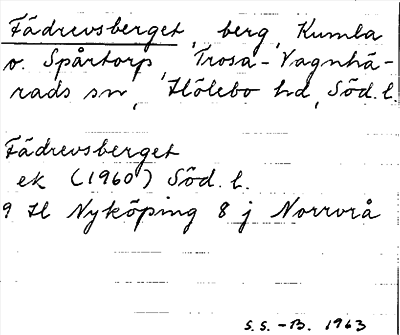 Fädrevsberget, berg, Kumla
o. Spårtorp, Trosa-Vagnhä-
rads sn, Hölebo hd, Söd. l.
Fädrevsberget
ek (1960) Söd. l.
9 H Nyköping 8 j Norrvrå
S.S.-B. 1963